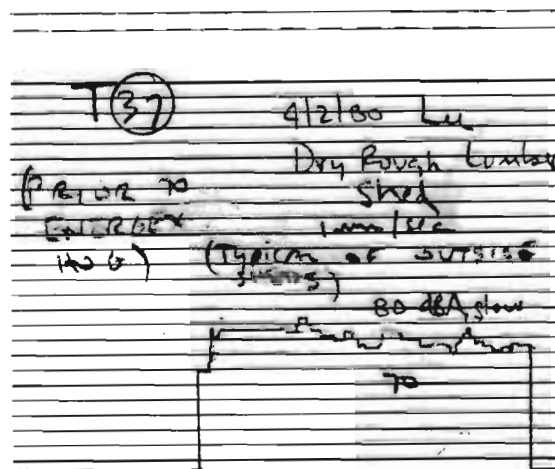 T 37
4/2/80 Lu
Dry Rough Lumber
Shed
1mm/sec
(PRIOR TO
ENERGEX
HOG)
(TYPICAL OF OUTSIDE
SHEDS)
80 dBA, slow
70